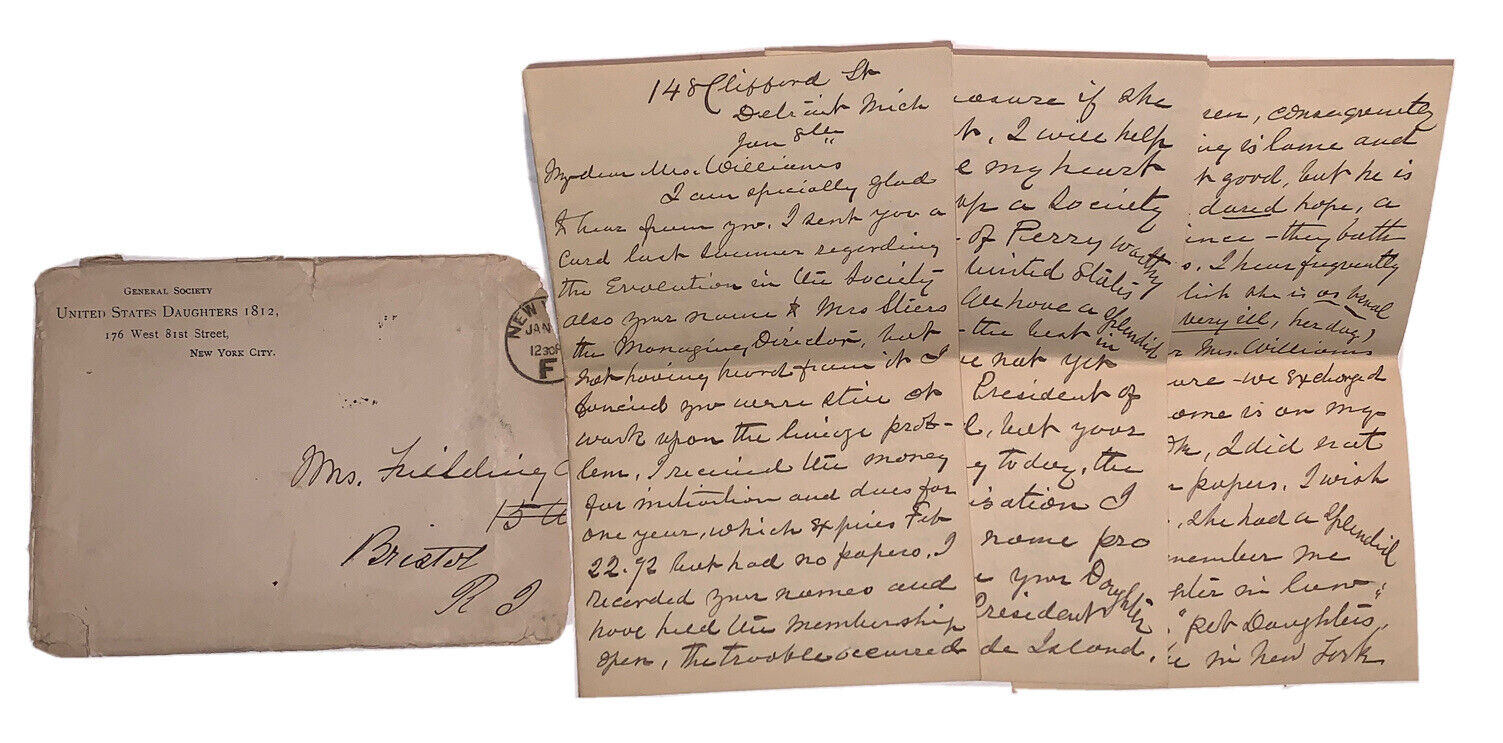 GENERAL SOCIETY
UNITED STATES DAUGHTERS 1812,
176 WEST 81ST STREET,
NEW YORK CITY.
NEW
JAN
12 30P
F
Mrs. Fielding
15
Bristol
R I
148 Clifford St
Detroit Mich
Jan 8th
My dear Mrs. Williams
I am specially glad
to hear from you. I sent you a
card last summer regarding
the Evolution in the Society
also your name & Mrs Stiers
the Managing Director, but
not having heard from it I
fancied you were still at
work upon the linage prob-
lem, I received the money
for initiation and dues for
one year, which expires Feb
22.92 but had no papers. I
recorded your names and
have held the membership
open, The trouble occurred
easure if she
t, I will help
e my heart
up a Society
of Perry worthy
United States
We have a splendid
- the best in
e not yet
President of
l, but your
y today, the
isation I
name pro
your Daughter
President
de Island.
een, consequently
ing is lame and
t good, but he is
dared hope, a
ince - they both
s. I hear frequently
she is as usual
very ill, her day,
Mrs. Williams
ure - we exchanged
ome is on my
I did not
papers. I wish
, she had a splendid
member me
hter in law,"
" pet Daughters,
in New York